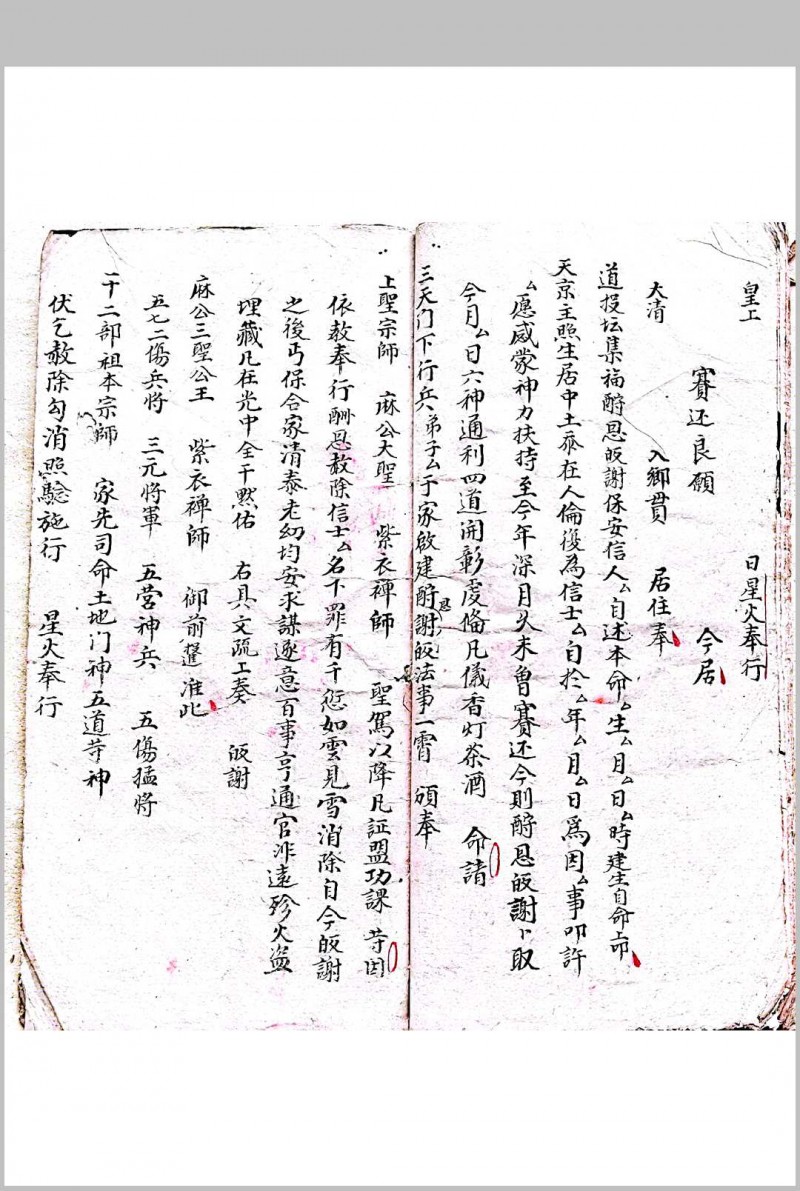 皇上 日星火奉行
賽还良願 今居
大清 入鄉貫 居住奉
道投坛集福酧恩皈謝保安信人厶自述本命厶生厶月厶日厶時建生自命上叩
天京主照生居中土忝在人倫後為信士厶自於厶年厶月厶日爲因厶事叩許
厶愿感蒙神力扶持至今年深月久未曾賽还今則酧恩皈謝卜取
今月厶日六神通利四道開彰虔俻凡儀香灯茶酒 命請
三天门下行兵弟子厶于家啟建酧恩謝皈法事一霄 頒奉
上聖宗師 麻公大聖 紫衣禅師 聖駕以降凡証盟功課 䒭因
依教奉行酬恩赦除信士厶名下罪有千愆如雲見雪消除自今皈謝
之後丐保合家清泰老幼均安求謀遂意百事亨通官非遠殄火盜
埋藏凡在光中全干黙佑 右具文疏上奏 皈謝
麻公三聖公王 紫衣禅師 御前 准此
五七二傷兵将 三元将軍 五营神兵 五傷猛将
十二部祖本宗師 家先司命土地门神五道䒭神
伏乞赦除勾消照驗施行 星火奉行